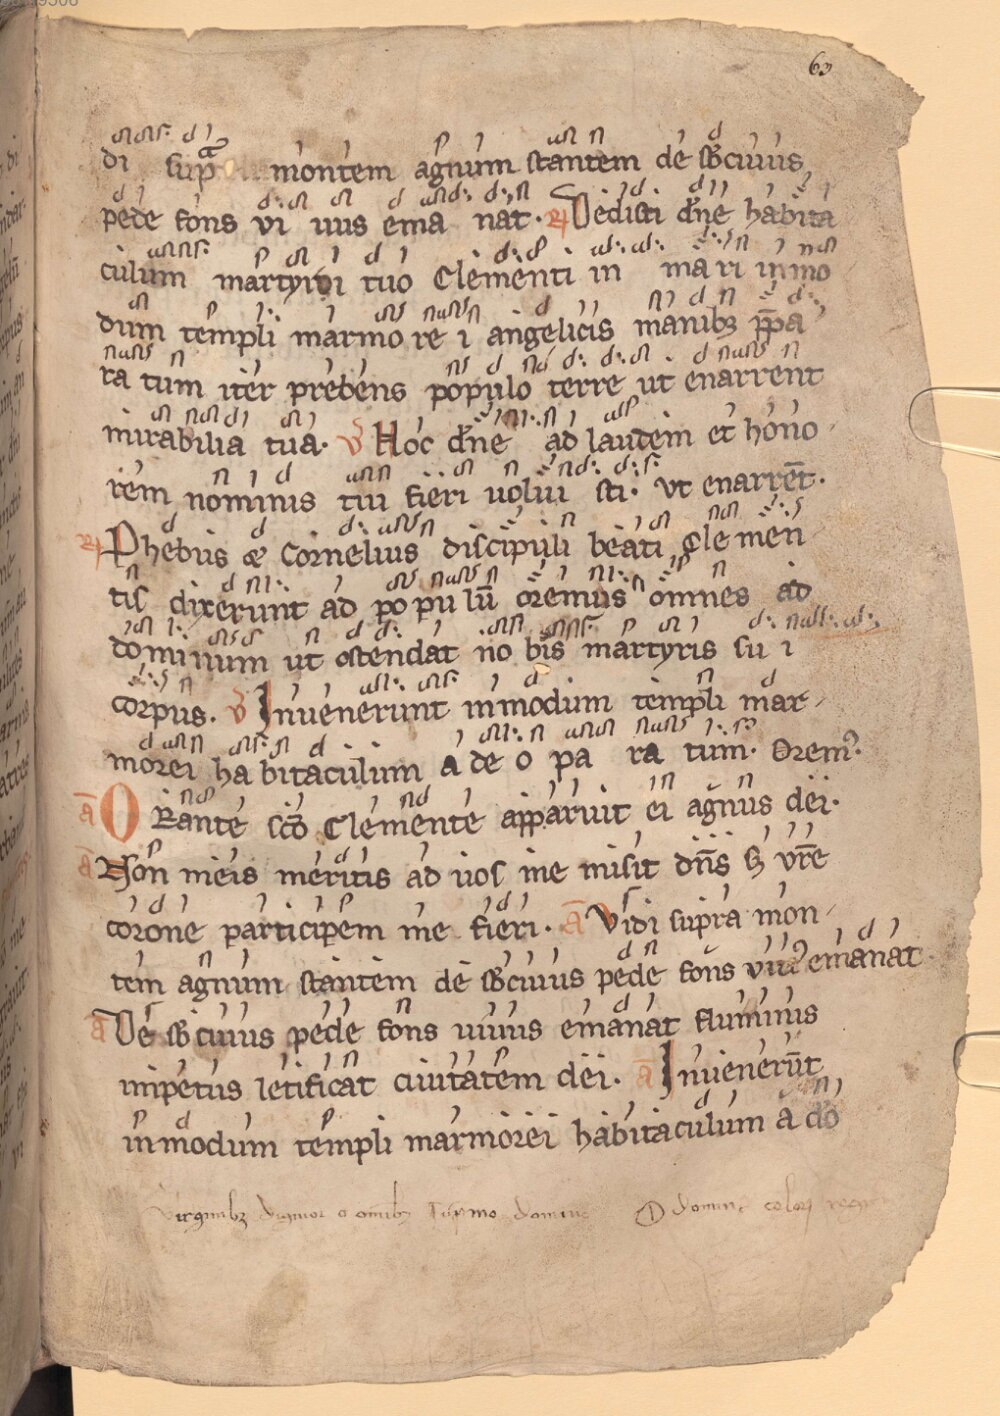 63
di sup̃ montem agnum stantem de sb̄ cuius
pede fons vi uus ema nat. R Dedisti dn̄e habita
culum martyri tuo Clementi in ma ri inmo
dum templi marmo re i angelicis manibꝫ p̄pa
ra tum iter prebens populo terre ut enarrent
mirabilia tua. V Hoc dn̄e ad laudem et hono
rem nominis tui fieri uolui sti. Vt enarrēt.
R Phebus & Cornelius discipuli beati Clemen
tis dixerunt ad po pu lū oremus omnes ad
dominum ut ostendat no bis martyris su i
corpus. V Inuenerunt inmodum templi mar
morei ha bitaculum a de o pa ra tum. Orem᷒.
a̅ Orante sc̄o Clemente apparuit ei agnus dei.
a̅ Non meis meritis ad uos me misit dn̄s sꝫ vr̄e
corone participem me fieri. a̅ Vidi supra mon
tem agnum stantem de sb̄ cuius pede fons viu᷒ emanat.
a̅ De sb̄ cuius pede fons uiuus emanat fluminis
impetus letificat ciuitatem dei. a̅ Inuenerūt
inmodum templi marmorei habitaculum a dō
virginibꝫ o omibꝫ domin domin